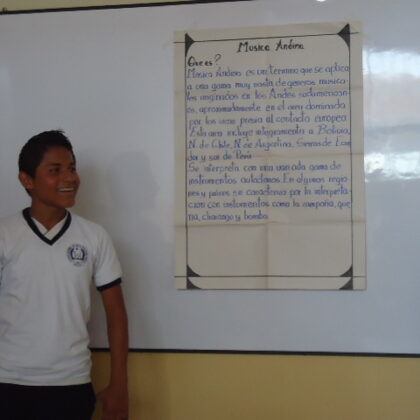 Musica Andina
Que es?
Musica Andina es un termino que se aplica
a una gama muy vasta de generos musica-
les inspirados en los Andes sudamerican-
os, aproximadamente en el area dominada
por los incas previa al contacto europeo
Esta area incluye integramente a Bolivia,
N. de Chile, N. de Argentina, Sierras de Ecua
dor y sur de Perú
Se interpreta con una variada gama de
instrumentos autoctonos. En algunos regio
nes y países se caracteriza por la interpreta
cion con instrumentos como la zampoña, que
na, charango y bombo